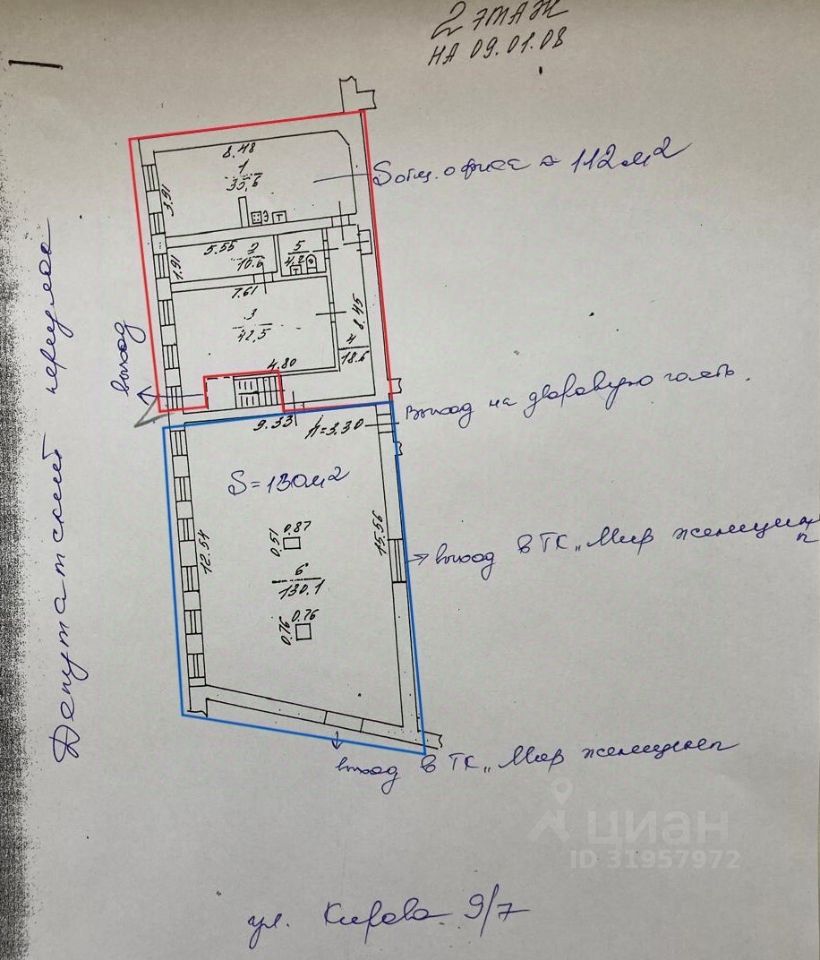 2 ЭТАЖ
НА 09.01.08
Sобщ. офиса ≈ 112 м2
8.48
1
35,6
3,91
5.55
2
10.6
1,91
5
4.2
7.61
3
42,5
8.45
4
18.6
4.80
выход
Депутатский переулок
Выход на дворовую часть.
9.33
h=3.30
S=130м2
0.87
0.51
12.54
15.56
6
130.1
0.76
0.76
выход в ТК „Мир женщины
выход в ТК „Мир женщины
циан
ID 31957972
ул. Кирова 9/7